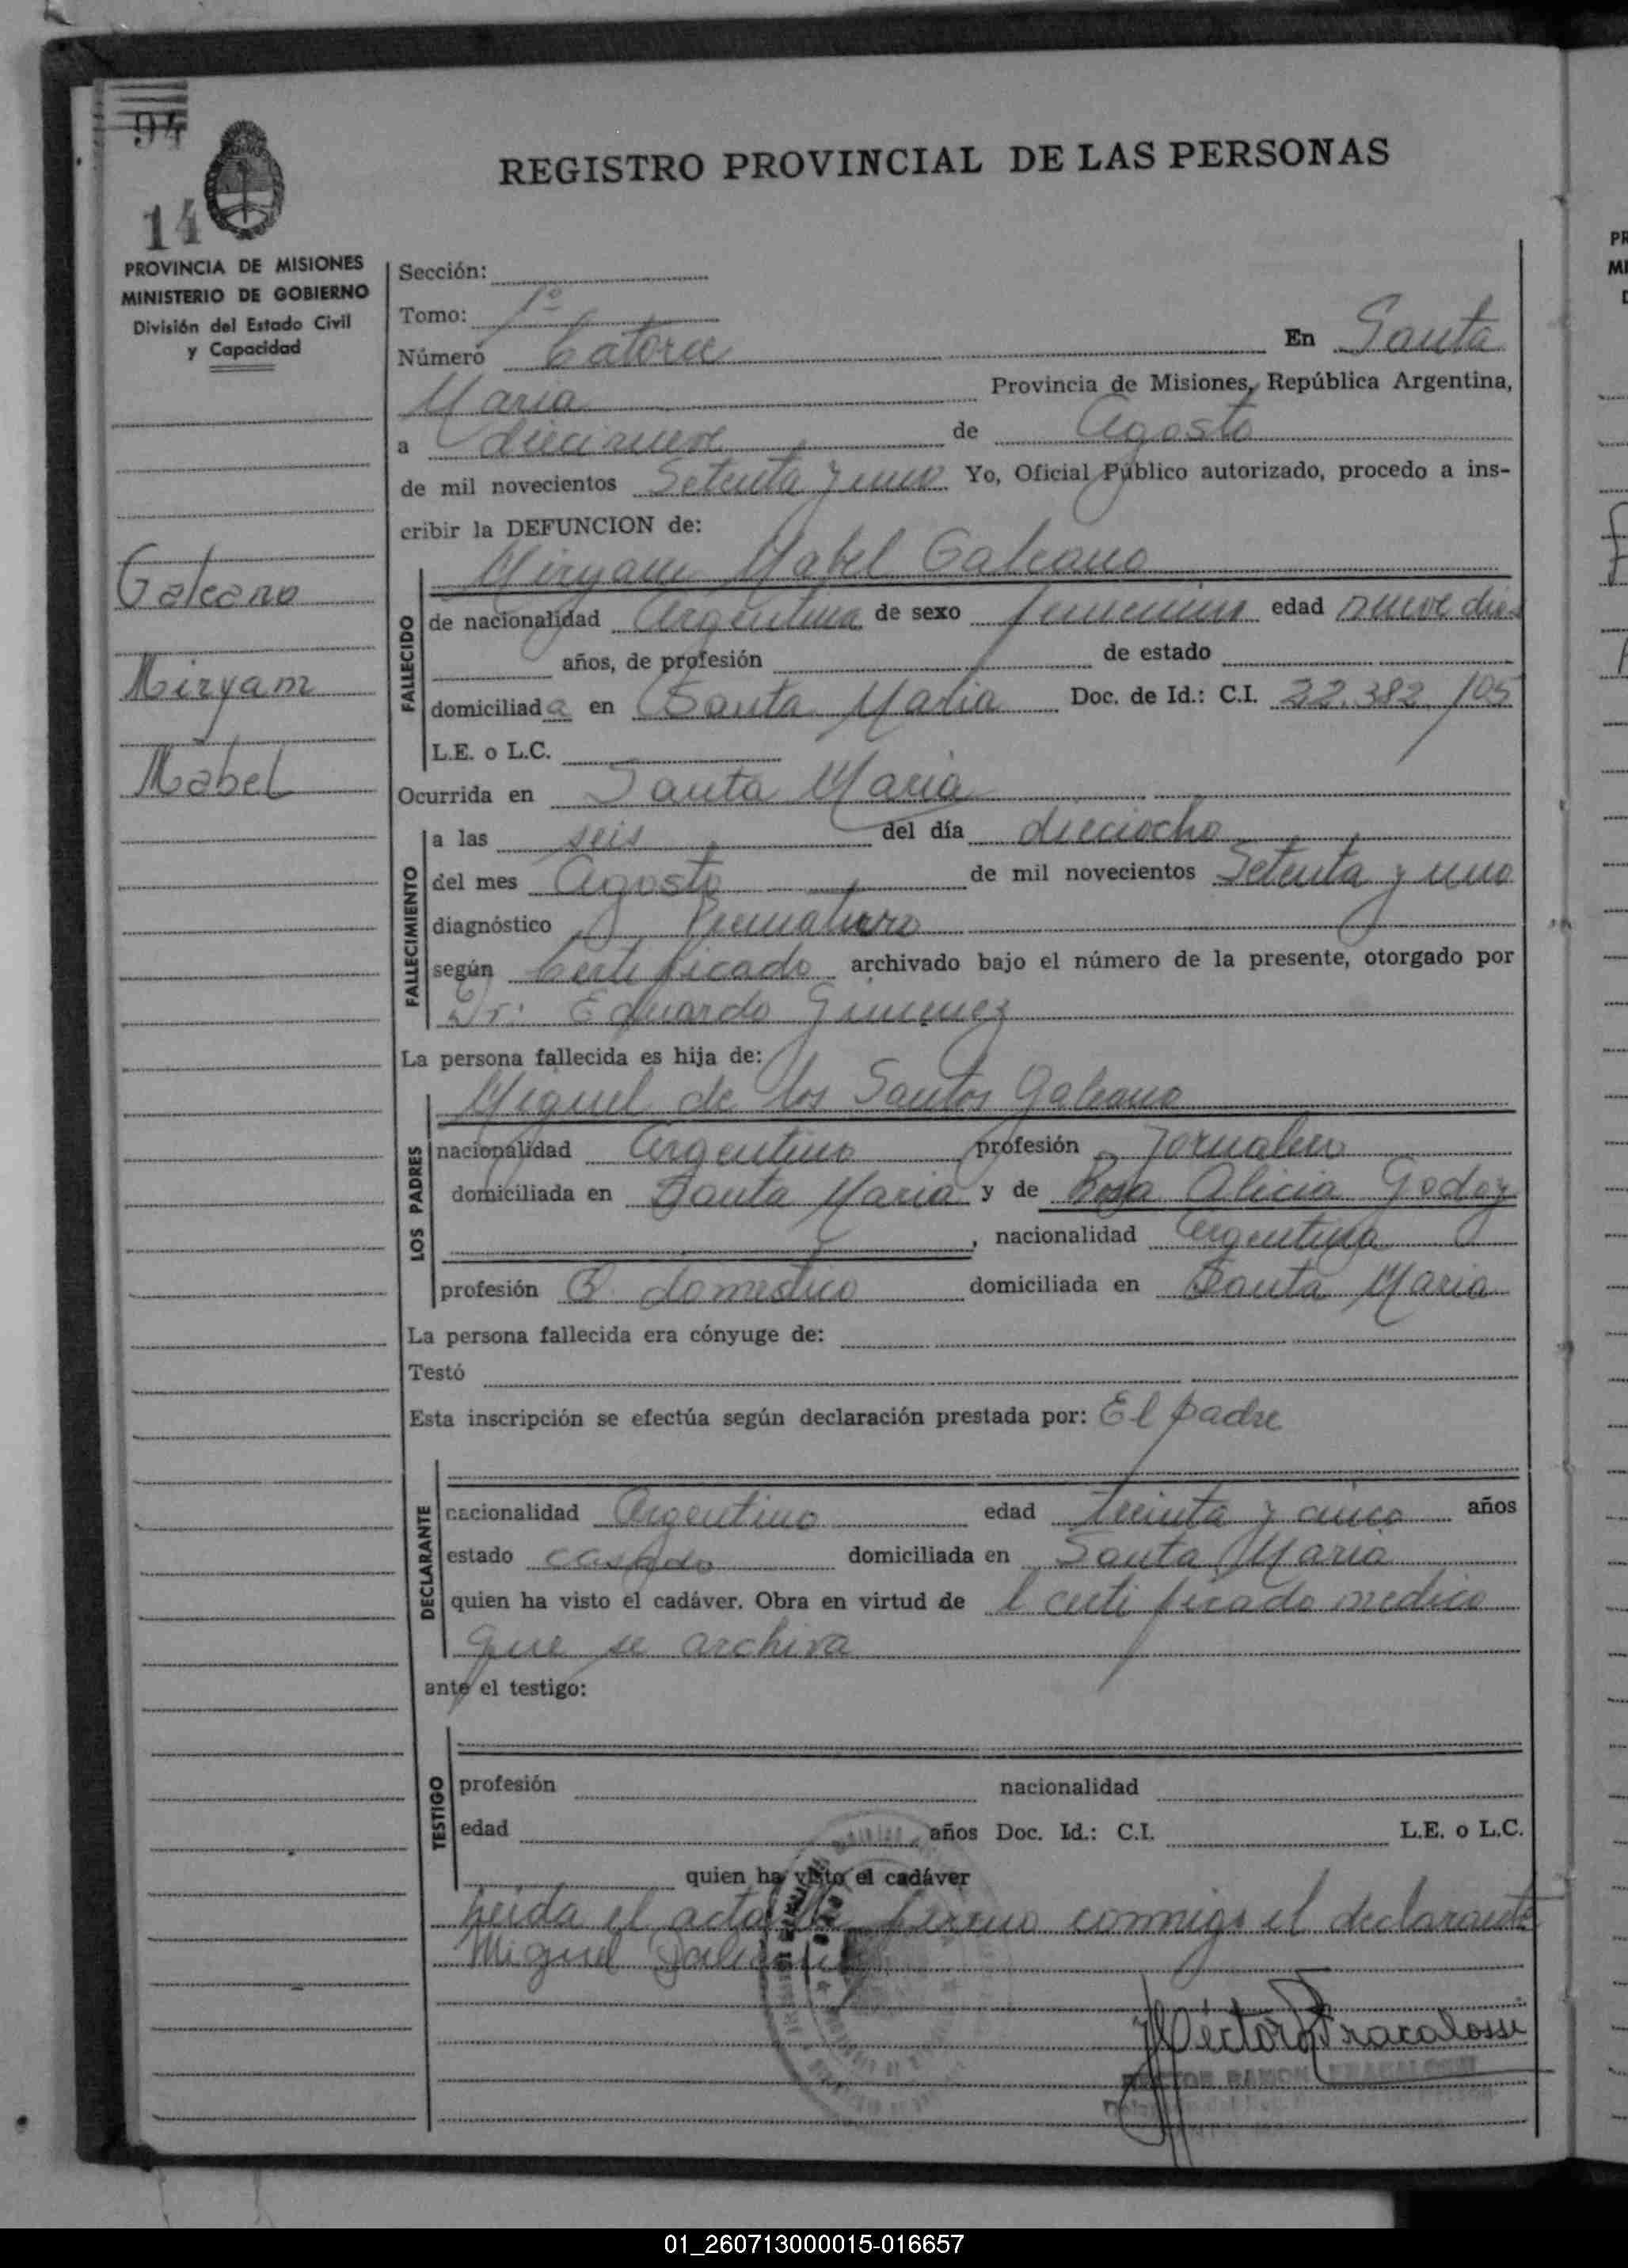 94
14
REGISTRO PROVINCIAL DE LAS PERSONAS
PROVINCIA DE MISIONES
MINISTERIO DE GOBIERNO
División del Estado Civil
y Capacidad
Galeano
Miryam
Mabel
Sección:
Tomo: 1º
Número Catorce En Santa
Maria Provincia de Misiones, República Argentina,
a diecinueve de Agosto
de mil novecientos Setenta y uno Yo, Oficial Público autorizado, procedo a ins-
cribir la DEFUNCION de:
Miryam Mabel Galeano
FALLECIDO
de nacionalidad Argentina de sexo femenino edad nueve dias
años, de profesión de estado
domiciliada en Santa Maria Doc. de Id.: C.I. 22.382.105
L.E. o L.C.
Ocurrida en Santa Maria
FALLECIMIENTO
a las seis del día dieciocho
del mes Agosto de mil novecientos Setenta y uno
diagnóstico Prematuro
según Certificado archivado bajo el número de la presente, otorgado por
Dr: Eduardo Gimenez
La persona fallecida es hija de:
Miguel de los Santos Galeano
LOS PADRES
nacionalidad Argentino profesión Jornalero
domiciliada en Santa Maria y de Rosa Alicia Godoy
, nacionalidad Argentina
profesión Q. domestico domiciliada en Santa Maria
La persona fallecida era cónyuge de:
Testó
Esta inscripción se efectúa según declaración prestada por: El padre
DECLARANTE
nacionalidad Argentino edad treinta y cinco años
estado casado domiciliada en Santa Maria
quien ha visto el cadáver. Obra en virtud de l certificado medico
que se archiva
ante el testigo:
TESTIGO
profesión nacionalidad
edad años Doc. Id.: C.I. L.E. o L.C.
quien ha visto el cadáver
Leida el acta la firma conmigo el declarante
Miguel Galeano
Hector R Fracalossi
HECTOR RAMON FRACALOSSI
01_260713000015-016657